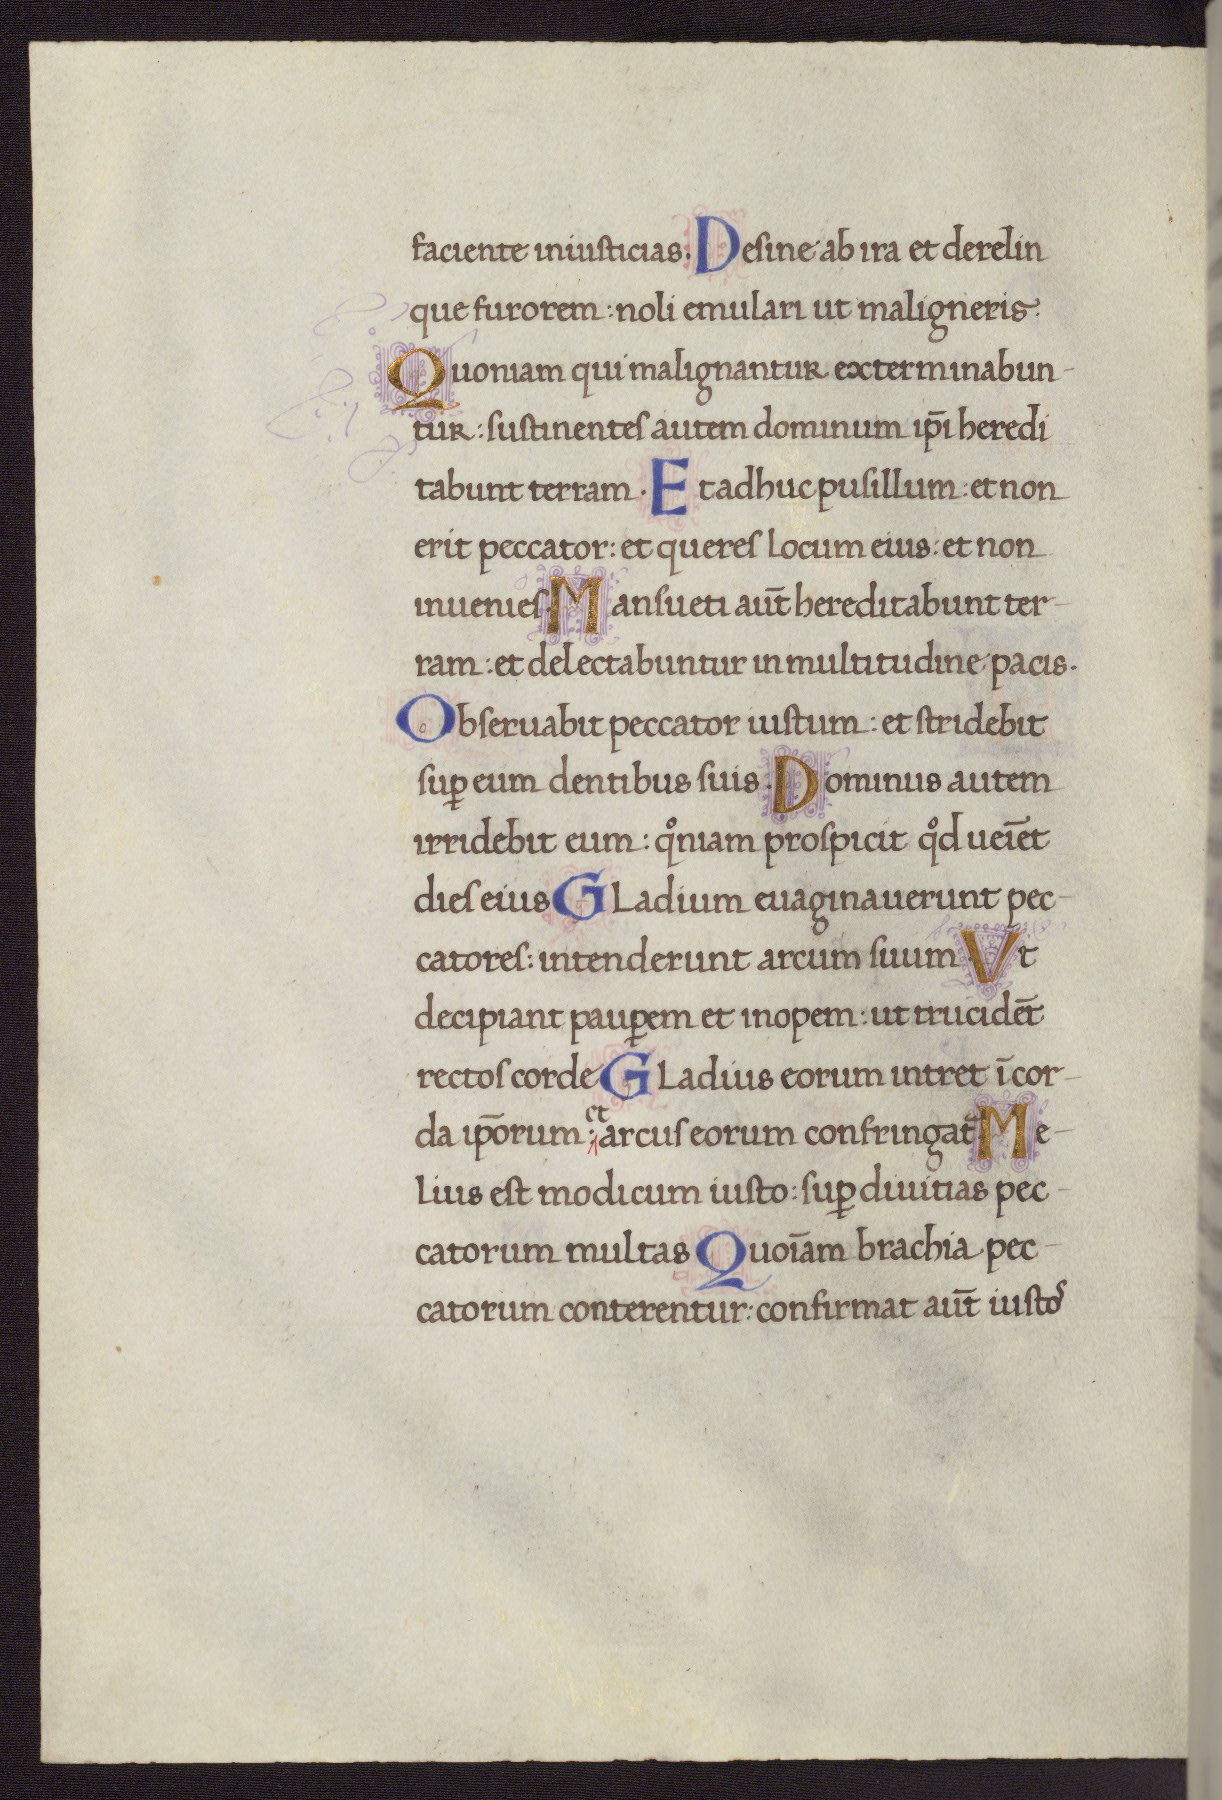 faciente iniusticias. Desine ab ira et derelin
que furorem: noli emulari ut maligneris.
Quoniam qui malignantur exterminabun-
tur: sustinentes autem dominum ip̄i heredi
tabunt terram. Et adhuc pusillum: et non
erit peccator: et queres locum eius: et non
inuenies. Mansueti aut̄ hereditabunt ter-
ram: et delectabuntur in multitudine pacis.
Obseruabit peccator iustum: et stridebit
suꝑ eum dentibus suis. Dominus autem
irridebit eum: qͦniam prospicit qͦd uei̅et
dies eius Gladium euaginauerunt pec-
catores: intenderunt arcum suum Vt
decipiant pauꝑem et inopem: ut trucidēt
rectos corde Gladius eorum intret ī cor-
da ip̄orum: et arcus eorum confringat᷑ Me-
lius est modicum iusto: suꝑ diuitias pec-
catorum multas Quoi̅am brachia pec-
catorum conterentur: confirmat aut̄ iustos